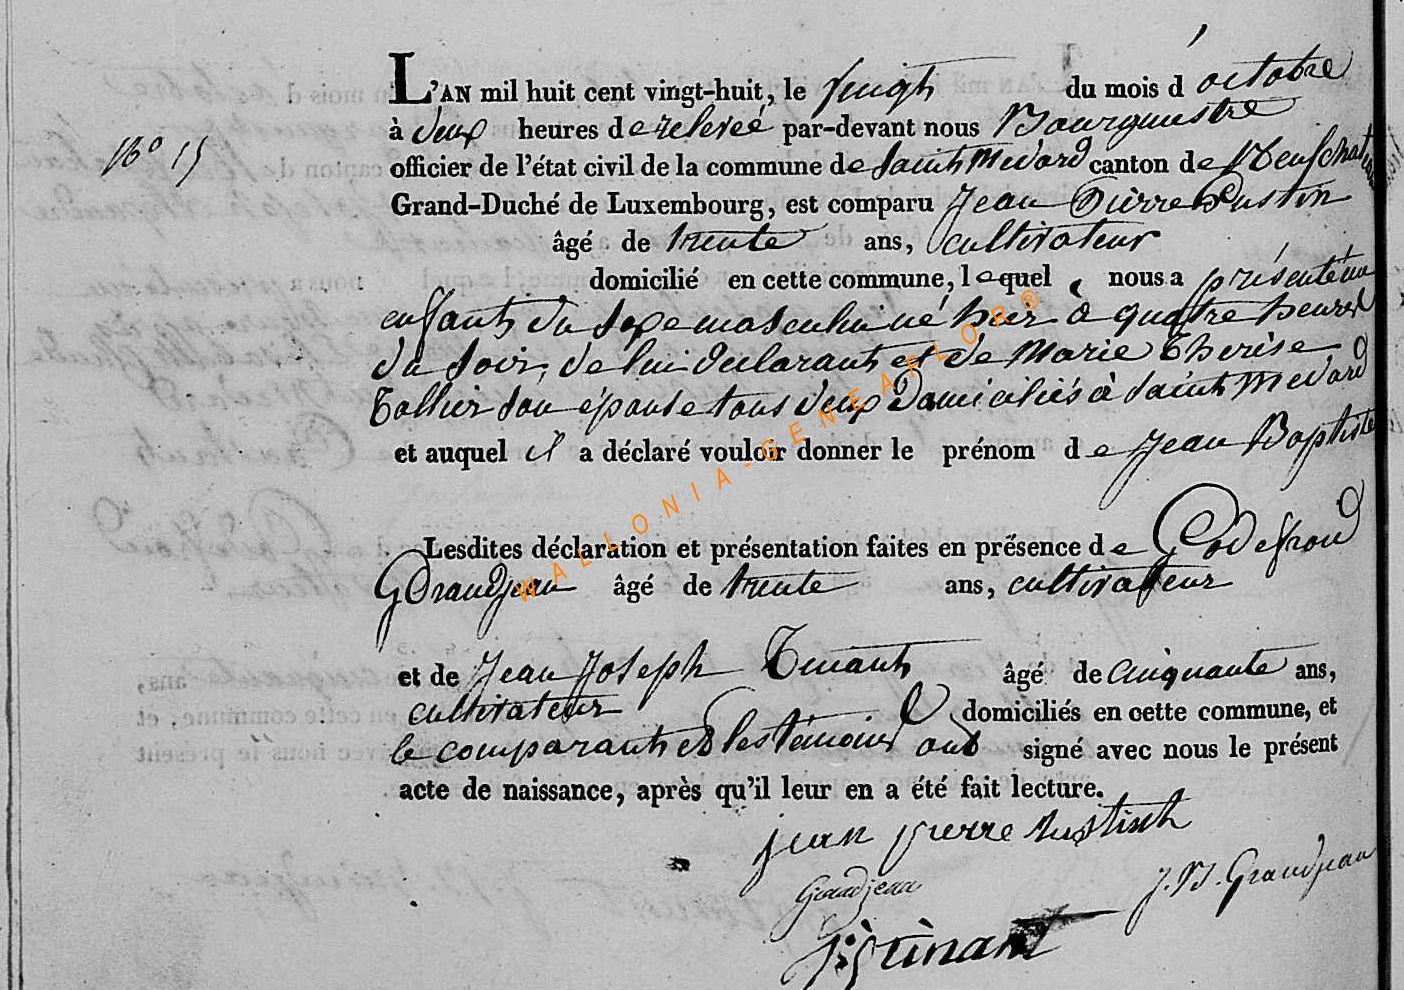 L'AN mil huit cent vingt-huit, le vingt du mois d'octobre
N° 15
à deux heures de relevée par-devant nous Bourguestre
officier de l'état civil de la commune de Saint Medard canton de Neufchateau
Grand-Duché de Luxembourg, est comparu Jean Pierre
âgé de trente ans, cultivateur
domicilié en cette commune, lequel nous a présenté un
enfant du sexe masculin né hier à quatre heures
du soir, de lui declarant et de Marie Therèse
Collier son épouse tous deux domiciliés à Saint Medard
et auquel il a déclaré vouloir donner le prénom de Jean Baptiste
Lesdites déclaration et présentation faites en présence de Godefroid
Grandjean âgé de trente ans, cultivateur
et de Jean Joseph Tinant âgé de cinquante ans,
cultivateur domiciliés en cette commune, et
le comparant et les témoins ont signé avec nous le présent
acte de naissance, après qu'il leur en a été fait lecture.
jean pierre
Grandjean
J. B. Grandjean
tinant
WALLONIA-GENEAFLOR®